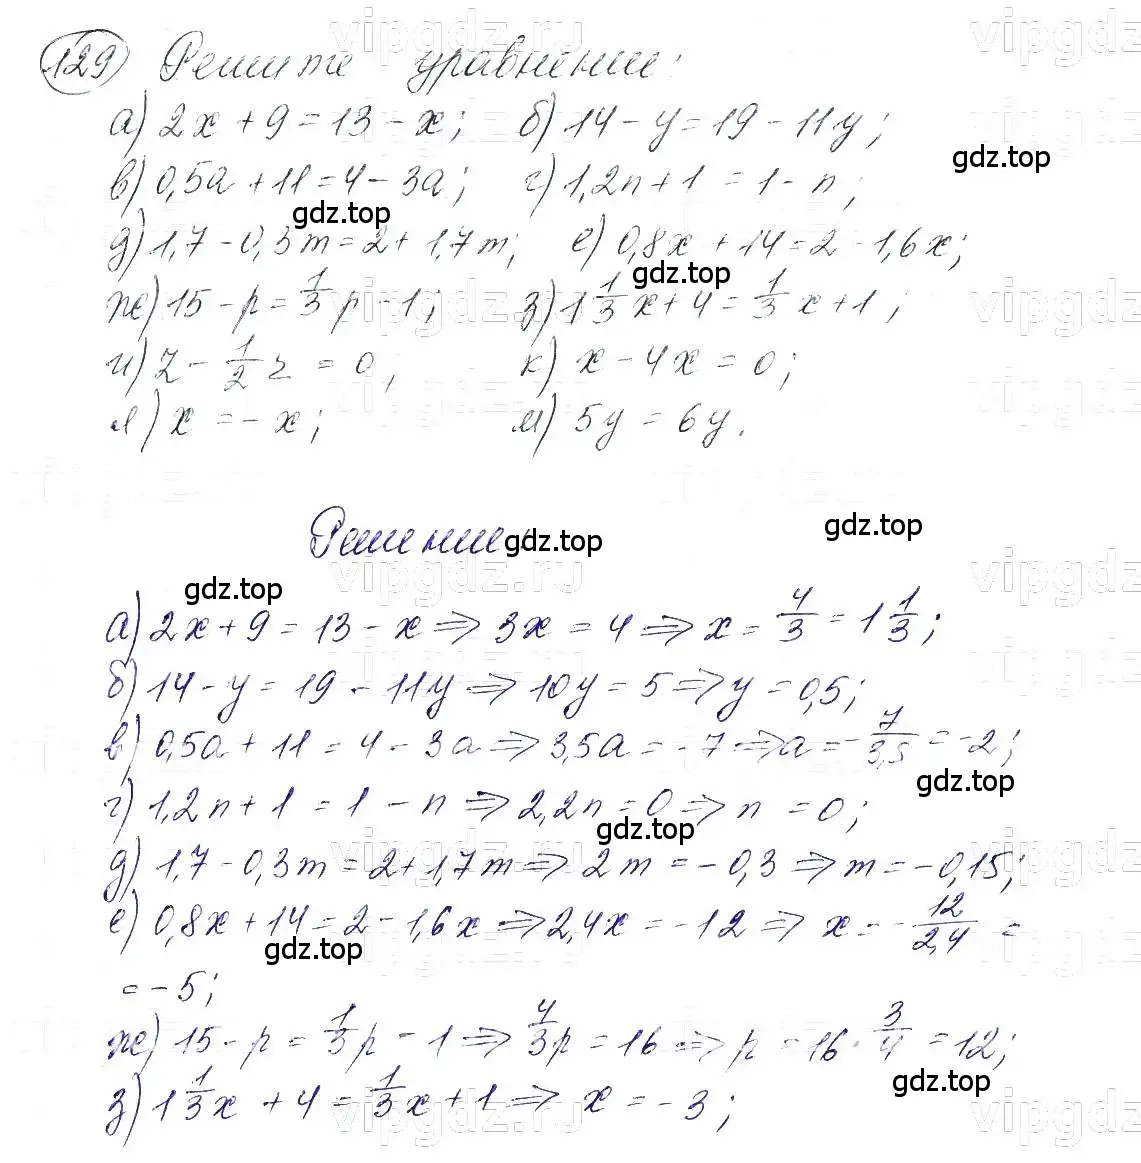 129 Решите уравнение:
а) 2x + 9 = 13 - x; б) 14 - y = 19 - 11y;
gdz.top
в) 0,5a + 11 = 4 - 3a; г) 1,2n + 1 = 1 - n;
gdz.top
д) 1,7 - 0,3m = 2 + 1,7m; е) 0,8x + 14 = 2 - 1,6x;
gdz.top
ж) 15 - p = 1/3 p - 1; з) 1 1/3 x + 4 = 1/3 x + 1;
и) z - 1/2 z = 0; к) x - 4x = 0;
л) x = -x; м) 5y = 6y.
Решение:
gdz.top
gdz.top
gdz.top
а) 2x + 9 = 13 - x ⇒ 3x = 4 ⇒ x = 4/3 = 1 1/3;
б) 14 - y = 19 - 11y ⇒ 10y = 5 ⇒ y = 0,5;
в) 0,5a + 11 = 4 - 3a ⇒ 3,5a = -7 ⇒ a = -7/3,5 = -2;
gdz.top
г) 1,2n + 1 = 1 - n ⇒ 2,2n = 0 ⇒ n = 0;
gdz.top
д) 1,7 - 0,3m = 2 + 1,7m ⇒ 2m = -0,3 ⇒ m = -0,15;
е) 0,8x + 14 = 2 - 1,6x ⇒ 2,4x = -12 ⇒ x = -12/2,4 =
gdz.top
= -5;
ж) 15 - p = 1/3 p - 1 ⇒ 4/3 p = 16 ⇒ p = 16 · 3/4 = 12;
gdz.top
з) 1 1/3 x + 4 = 1/3 x + 1 ⇒ x = -3;
vipgdz.ru